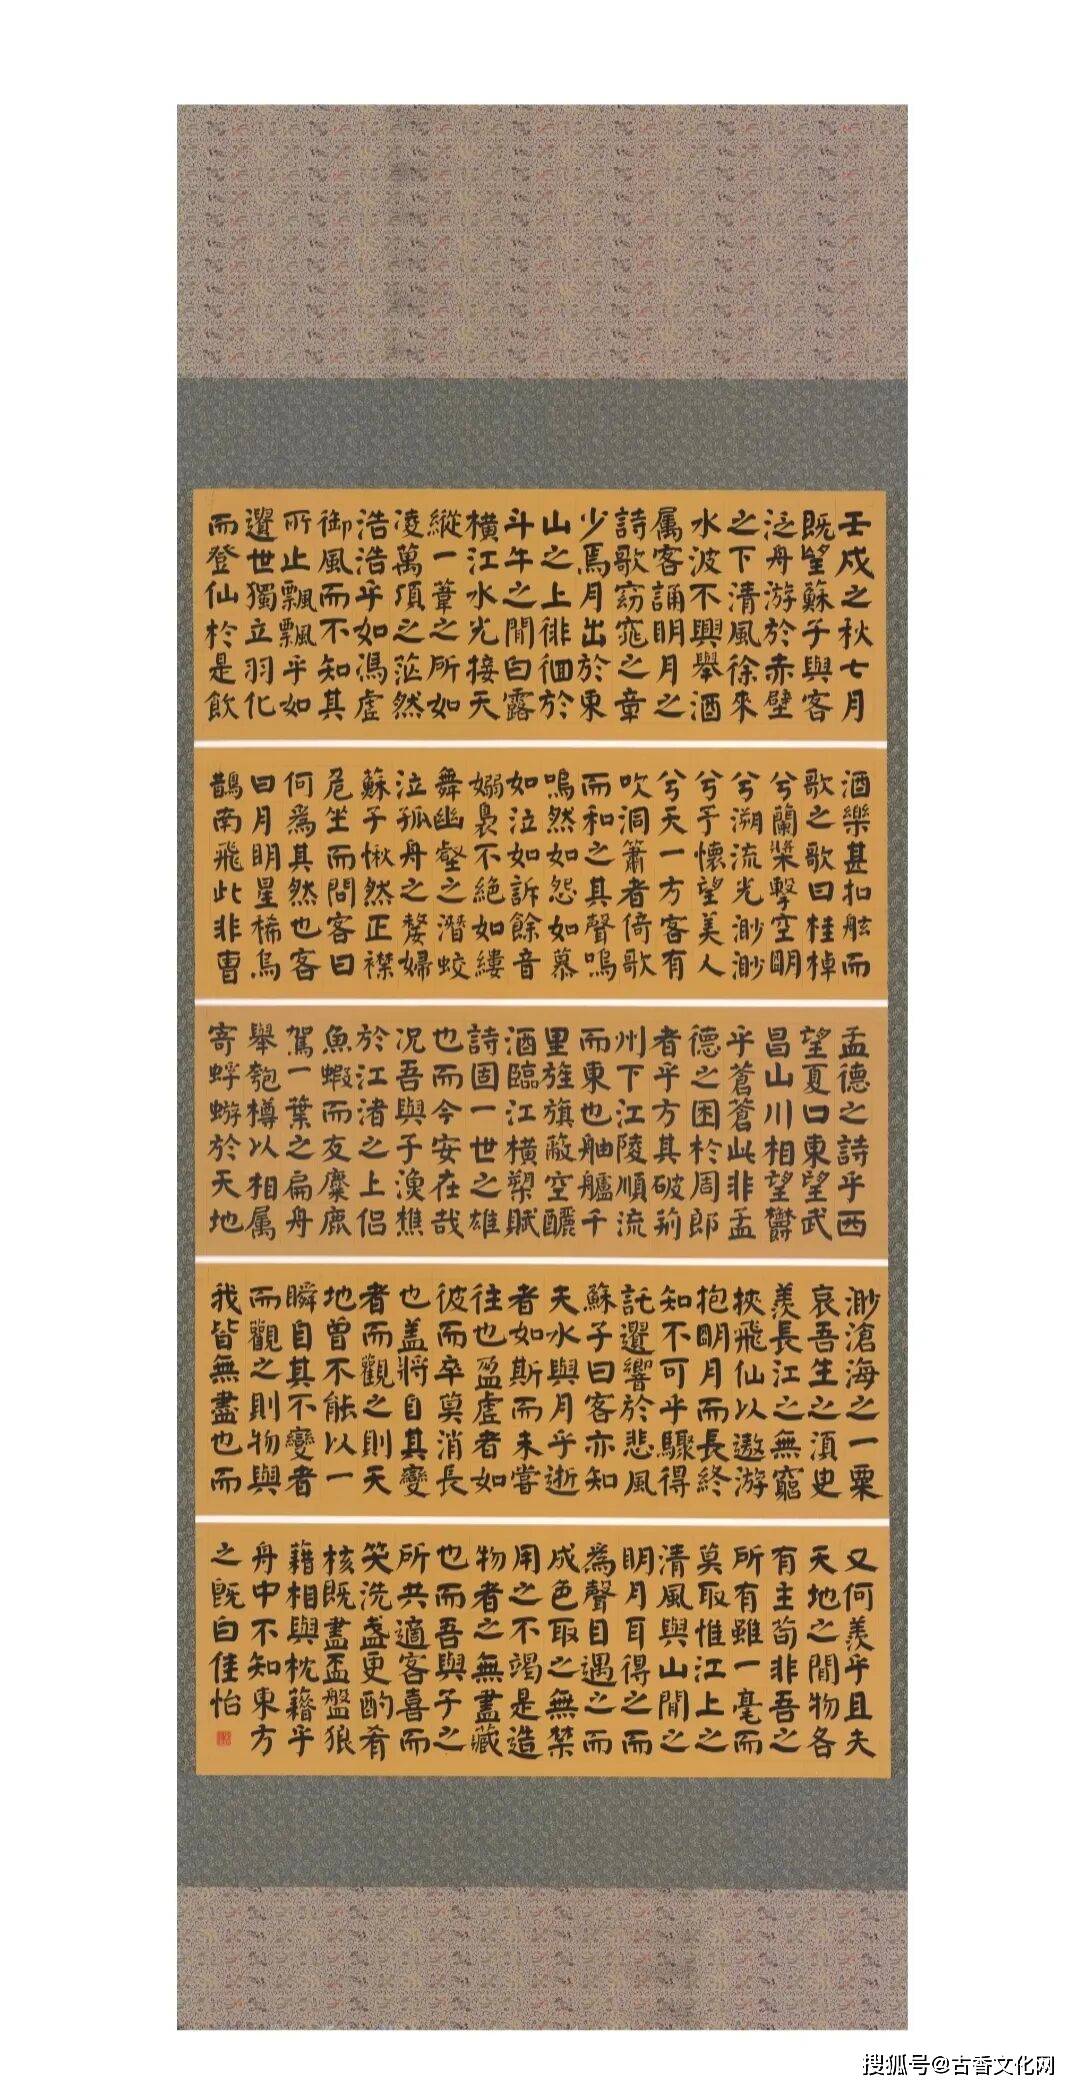 壬戌之秋七月
既望蘇子與客
泛舟游於赤壁
之下清風徐來
水波不興舉酒
属客誦明月之
詩歌窈窕之章
少焉月出於東
山之上徘徊於
斗牛之間白露
橫江水光接天
縱一葦之所如
凌萬頃之茫然
浩浩乎如馮虛
御風而不知其
所止飄飄乎如
遺世獨立羽化
而登仙於是飲
酒樂甚扣舷而
歌之歌曰桂棹
兮蘭槳擊空明
兮溯流光渺渺
兮予懷望美人
兮天一方客有
吹洞簫者倚歌
而和之其聲嗚
嗚然如怨如慕
如泣如訴餘音
嫋裊不絕如縷
舞幽壑之潛蛟
泣孤舟之嫠婦
蘇子愀然正襟
危坐而問客曰
何為其然也客
曰月明星稀烏
鵲南飛此非曹
孟德之詩乎西
望夏口東望武
昌山川相望欝
乎蒼蒼此非孟
德之困於周郎
者乎方其破荊
州下江陵順流
而東也舳艫千
里旌旗蔽空釃
酒臨江橫槊賦
詩固一世之雄
也而今安在哉
況吾與子漁樵
於江渚之上侶
魚蝦而友麋鹿
駕一葉之扁舟
舉匏樽以相属
寄蜉蝣於天地
渺滄海之一粟
哀吾生之須臾
羨長江之無窮
挾飛仙以遨游
抱明月而長終
知不可乎驟得
託遺響於悲風
蘇子曰客亦知
夫水與月乎逝
者如斯而未嘗
往也盈虛者如
彼而卒莫消長
也蓋將自其變
者而觀之則天
地曾不能以一
瞬自其不變者
而觀之則物與
我皆無盡也而
又何羨乎且夫
天地之間物各
有主苟非吾之
所有雖一毫而
莫取惟江上之
清風與山間之
明月耳得之而
為聲目遇之而
成色取之無禁
用之不竭是造
物者之無盡藏
也而吾與子之
所共適客喜而
笑洗盞更酌肴
核既盡盃盤狼
藉相與枕藉乎
舟中不知東方
之既白佳怡
搜狐号@古香文化网